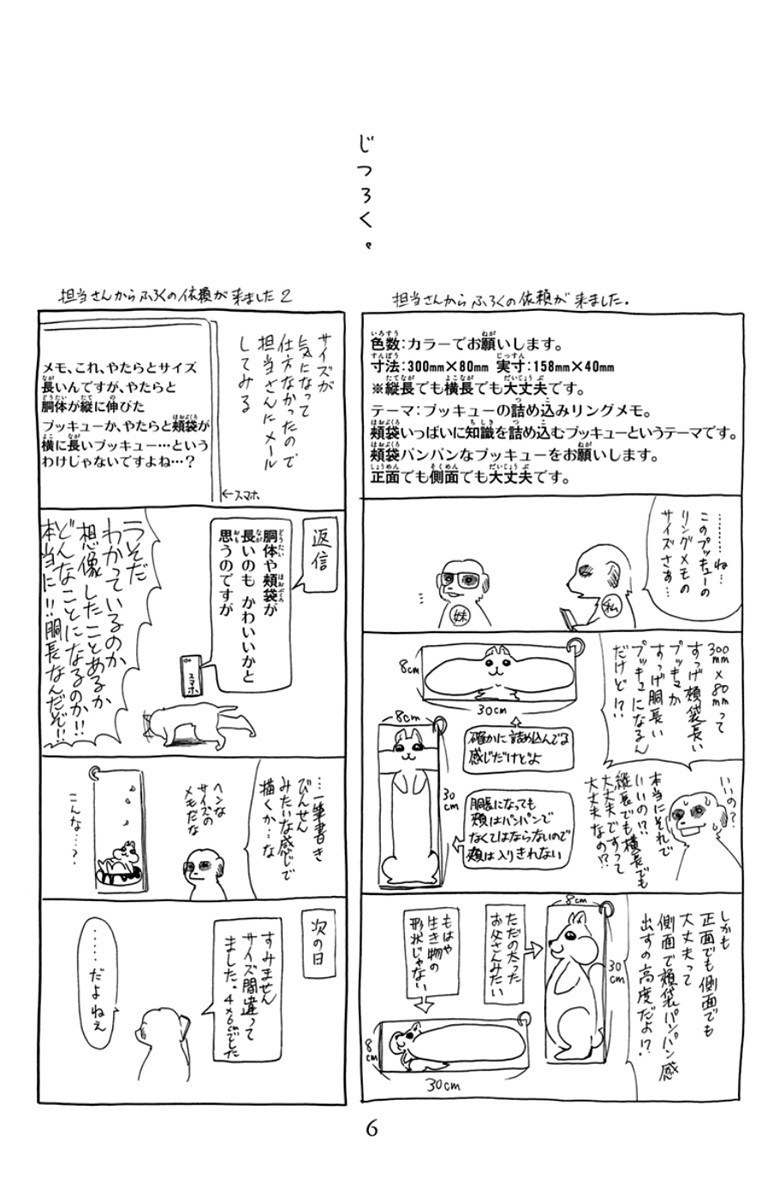 じつろく。
担当さんからふろくの依頼が来ました.
色数:カラーでお願いします。
寸法:300mm×80mm 実寸:158mm×40mm
※縦長でも横長でも大丈夫です。
テーマ:プッキューの詰め込みリングメモ。
頬袋いっぱいに知識を詰め込むプッキューというテーマです。
頬袋パンパンなプッキューをお願いします。
正面でも側面でも大丈夫です。
………ね…
このプッキューの
リングメモの
サイズさぁ…
私
妹
300mm×80mmって
すっげ頬袋長い
プッキューか
すっげ胴長い
プッキューになるん
だけど!?
8cm
30cm
確かに詰め込んでる
感じだけどよ
8cm
30cm
胴長になっても
頬はパンパンで
なくてはならないので
頬は入りきれない
いいの?
本当にそれで
いいの!?
縦長でも横長でも
大丈夫ですって
大丈夫なの!?
しかも
正面でも側面でも
大丈夫って
側面で頬袋パンパン感
出すの高度だよ!?
8cm
30cm
ただの太った
お父さんみたい
もはや
生き物の
形状じゃない
8cm
30cm
担当さんからふろくの依頼が来ました2
サイズが
気になって
仕方なかったので
担当さんにメール
してみる
メモ、これ、やたらとサイズ
長いんですが、やたらと
胴体が縦に伸びた
プッキューか、やたらと頬袋が
横に長いプッキュー…という
わけじゃないですよね…?
←スマホ
返信
胴体や頬袋が
長いのも かわいいかと
思うのですが
スマホ
うそだ
わかっているのか
想像したことあるか
どんなことになるのか!!
本当に!!胴長なんだぞ!!
…一筆書き
びんせん
みたいな感じで
描くか…な
ヘンな
サイズの
メモだな
こんな…?
次の日
すみません
サイズ間違って
ました。4×6cmでした
……だよねぇ
6